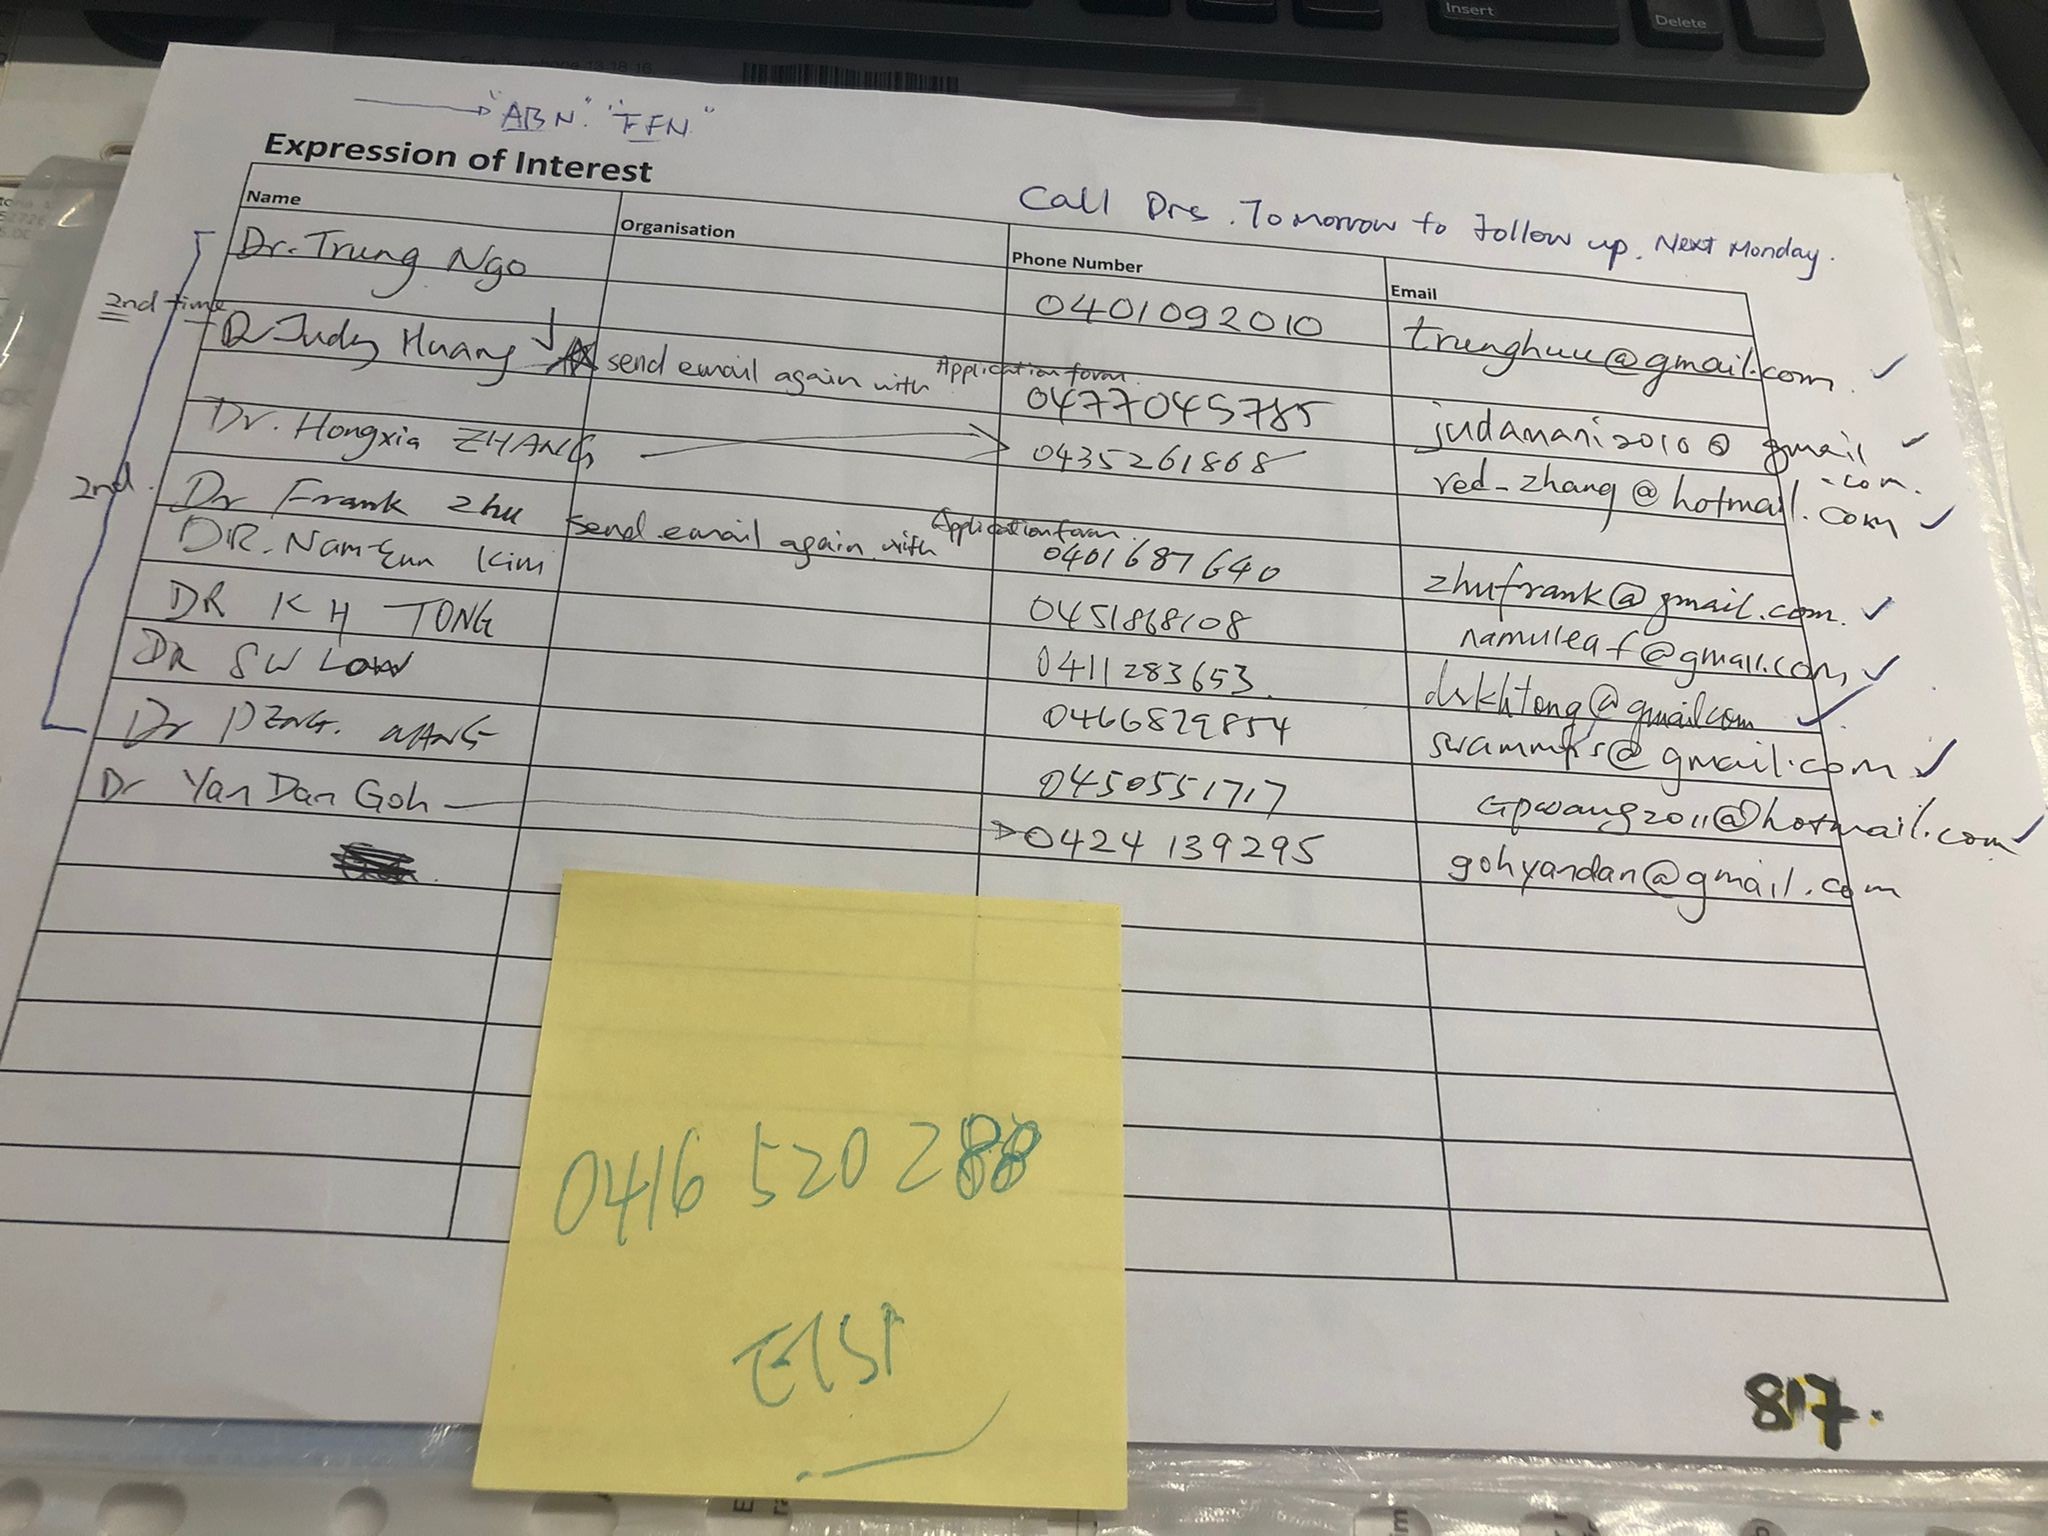 "ABN" "TFN"
Expression of Interest
Call Drs. Tomorrow to follow up. Next Monday.
Name Organisation Phone Number Email
Dr. Trung Ngo 0401092010 trunghuu@gmail.com
2nd time
Dr Judy Huang send email again with Application form. 0477045785 judamani2010@gmail.com.
Dr. Hongxia ZHANG 0435261868 red_zhang@hotmail.com
2nd.
Dr Frank Zhu send email again with Application form. 0401687640 zhufrank@gmail.com.
DR. Nam-Eun Kim 0451868108 namuleaf@gmail.com
DR KH TONG 0411283653. drkhtong@gmail.com
DR SW LOW 0466829854 @gmail.com
Dr PENG. WANG 0450551717 Gpwang2011@hotmail.com
Dr Yan Dan Goh 0424 139295 gohyandan@gmail.com
0416 520 288
817.
Insert
Delete